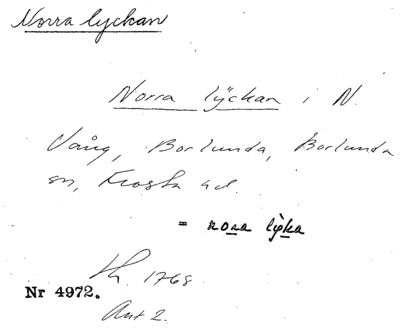 Norra lyckan
Norra lÿckan i N.
Vång, Borlunda, Borlunda
sn, Frosta hd.
= nora lyka
Lh. 1768
Nr 4972.
Ant 2.